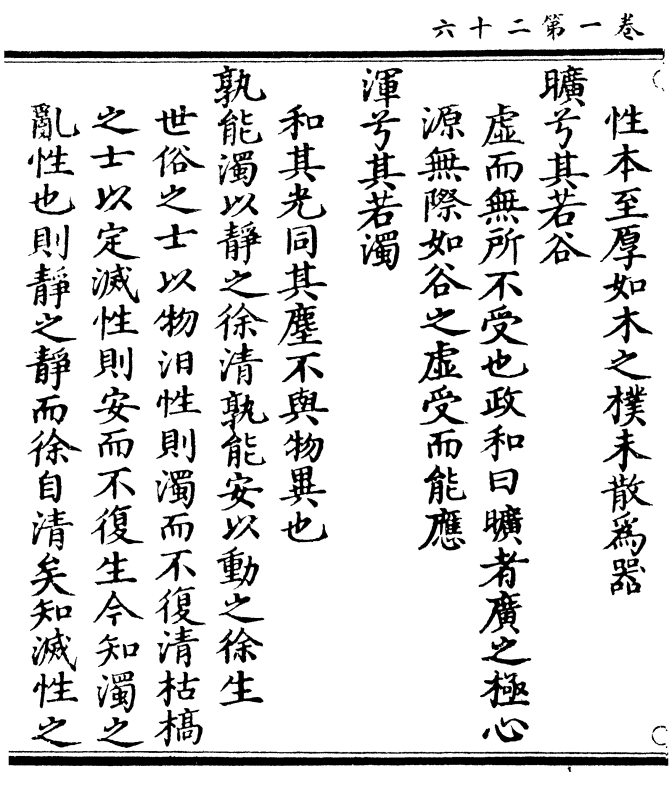 卷一第二十六
性本至厚如木之樸未散爲器
曠兮其若谷
虛而無所不受也政和曰曠者廣之極心
源無際如谷之虛受而能應
渾兮其若濁
和其光同其塵不與物異也
孰能濁以靜之徐清孰能安以動之徐生
世俗之士以物汩性則濁而不復清枯槁
之士以定滅性則安而不復生今知濁之
亂性也則靜之靜而徐自清矣知滅性之